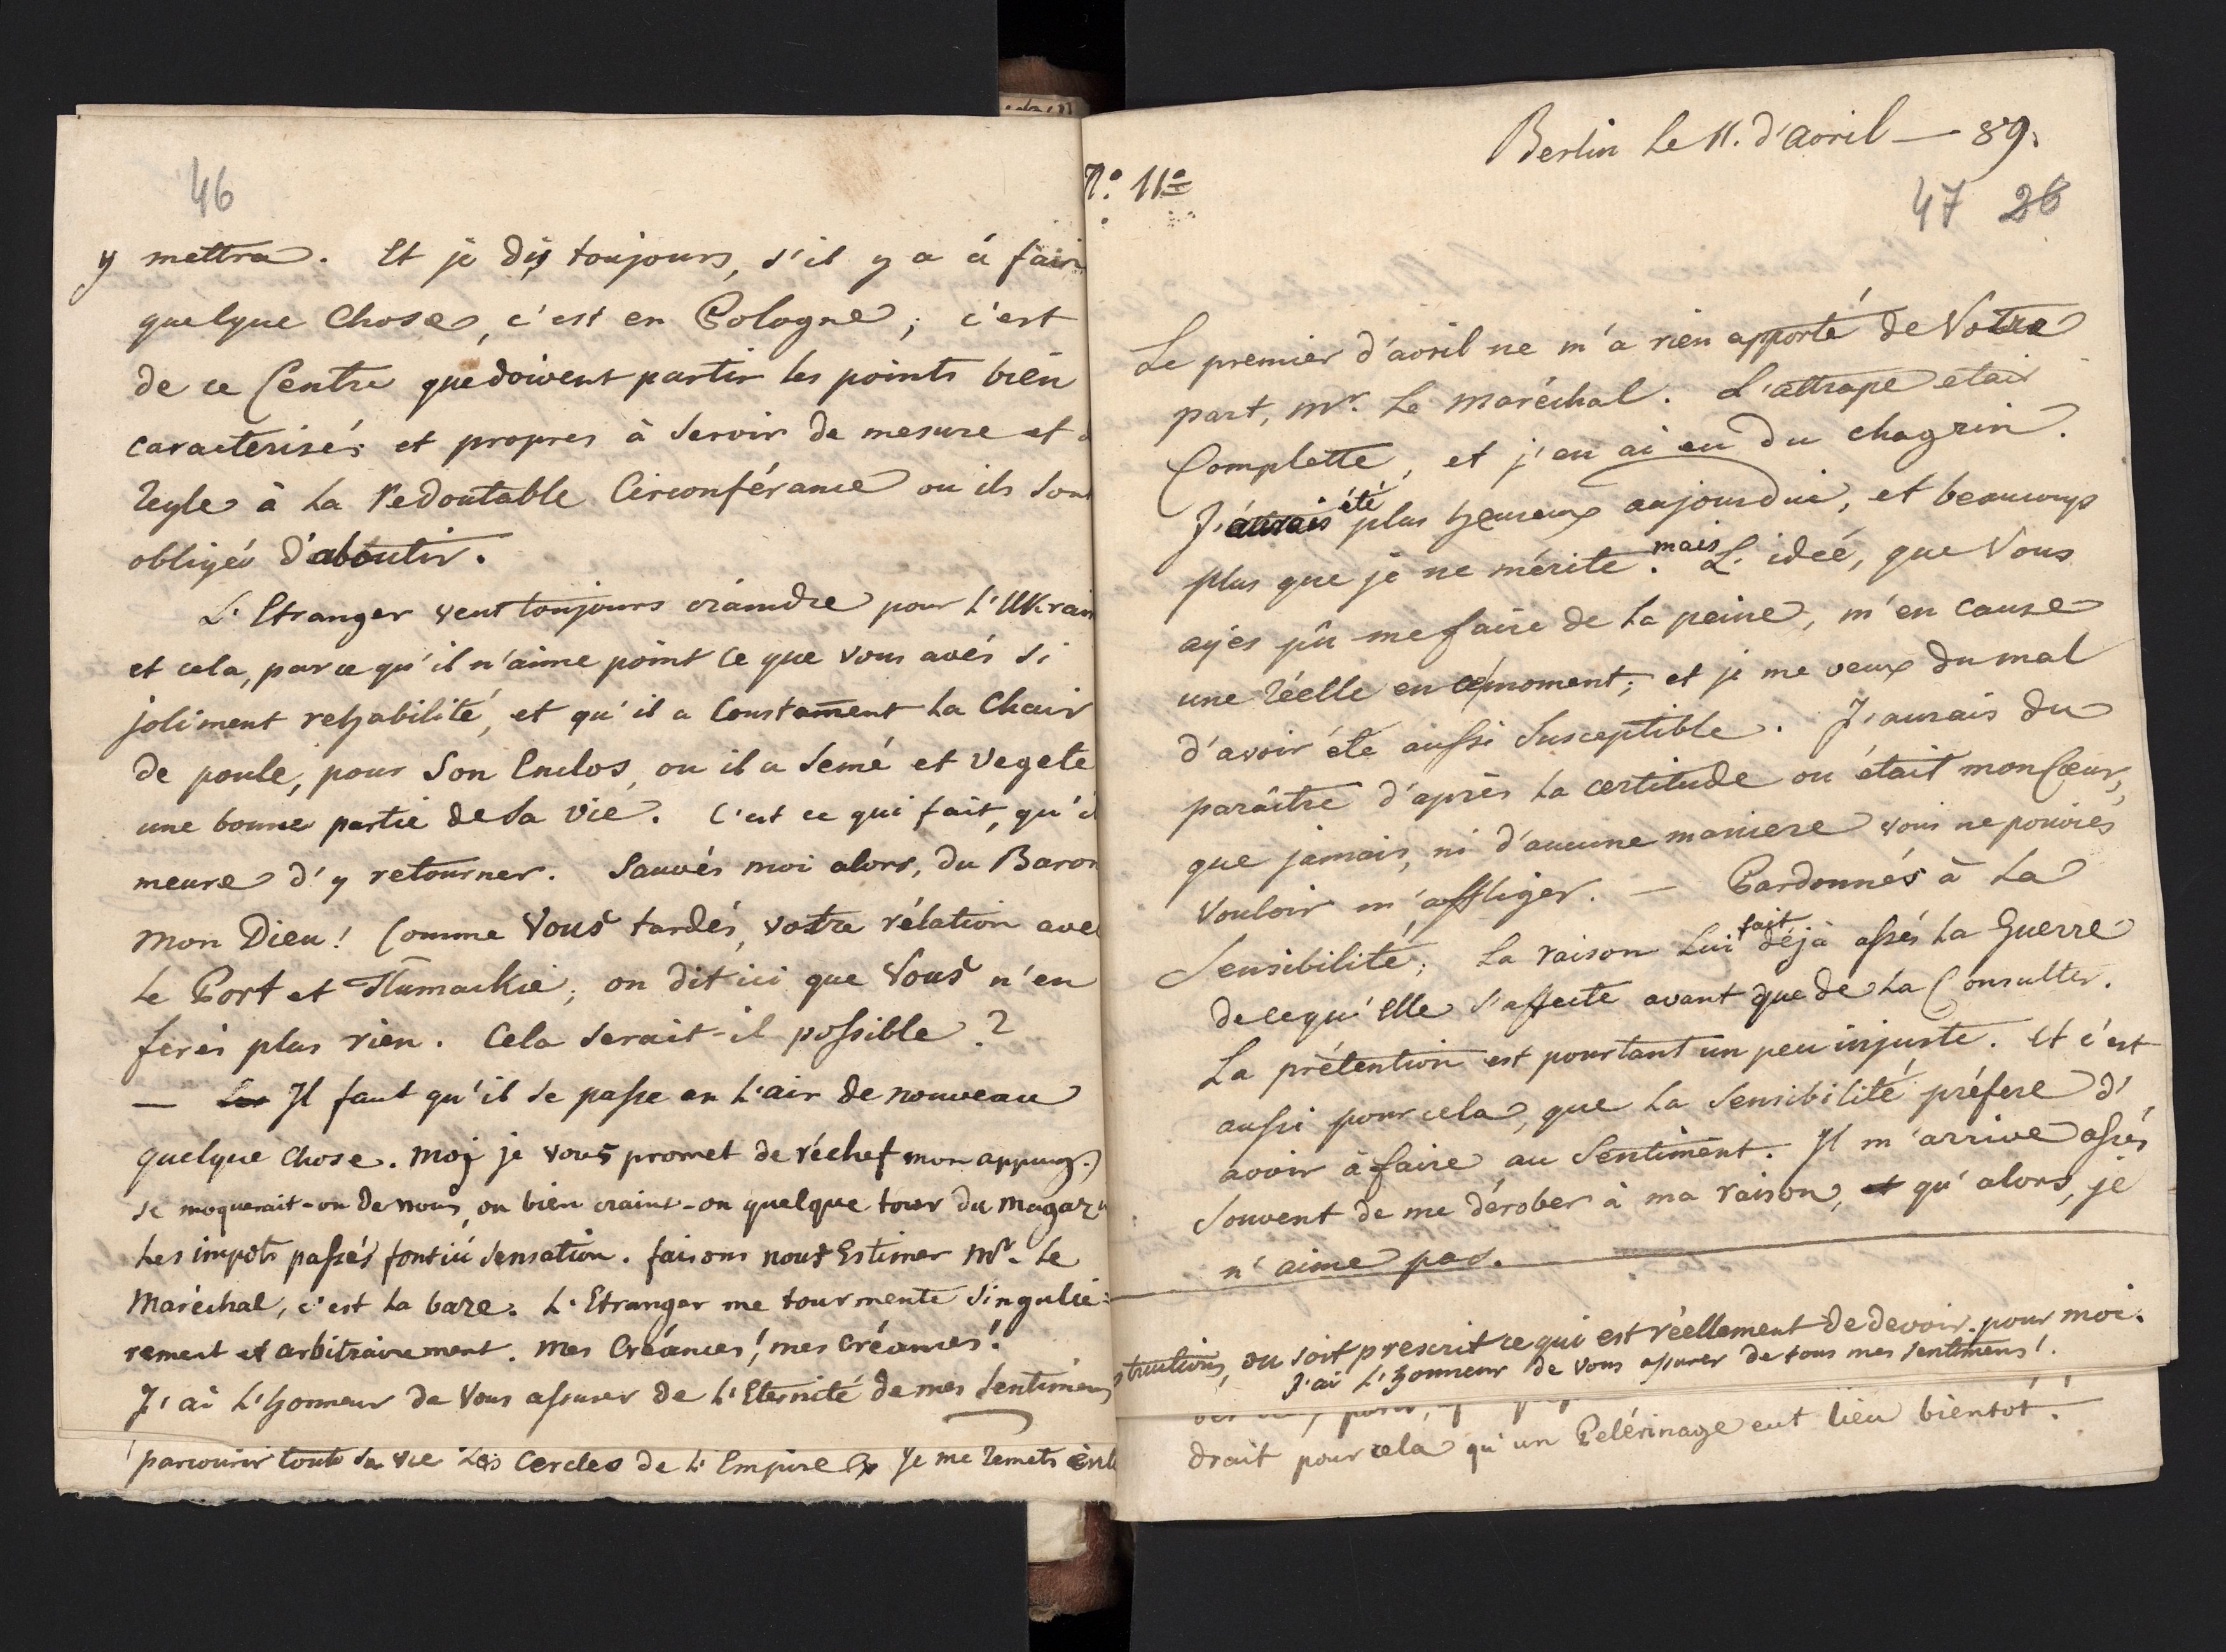 46
y mettra. Et je dis toujours, s'il y a á fair
quelque Chose, c'est en Pologne; c'est
de ce Centre que doivent partir les points bien
caracterisés et propres à servir de mesure et
regle à la redoutable Circonférance ou ils sont
obligés d'aboutir.
L'Etranger veut toujours craindre pour l'Ukrain
et cela, parce qu'il n'aime point ce que vous avés si
joliment rehabilité, et qu'il a Constament la Chair
de poule, pour son Enclos, ou il a semé et vegeté
une bonne partie de sa vie. C'est ce qui fait, qu'il
meure d'y retourner. Sauvés moi alors, du Baron
mon Dieu! Comme Vous tardés, votre rélation avec
le Port et; on dit ici que Vous n'en
ferés plus rien. Cela serait-il possible?
— Il faut qu'il se passe en l'air de nouveau
quelque chose. moi je vous promet de réchef mon appuy.)
se moquerait-on de nous, ou bien craint-on quelque tour du magaz
Les impots passés font ici sensation. faisons nous Estimer Mr. le
Maréchal, c'est la baze. L'Etranger me tourmente singulie:
rement et arbitrairement. mes Créances! mes Créances!
J'ai l'honneur de Vous assurer de l'Eternité de mes sentimens
parcourir toute sa vie les Cercles de l'Empire je me remets
No. 11o
Berlin le 11. d'avril — 89.
47 26
Le premier d'avril ne m'a rien apporté de Votre
part, Mr. Le Maréchal. L'attrape etait
Complette, et j'en ai eu du chagrin.
J'aurais été plus heureux aujourdui, et beaucoup
plus que je ne mérite. mais L'ideé, que Vous
ayés pû me faire de la peine, m'en cause
une réelle en ce moment; et je me veux du mal
d'avoir été aussi susceptible. J'aurais du
paraître d'après la certitude ou était mon Cœur,
que jamais, ni d'aucune maniere vous ne pouviés
vouloir m'affliger. — Pardonnés à la
Sensibilité; la raison lui fait déjà assés la Guerre
de ce qu'elle s'affecte avant que de la Consulter.
La prétention est pourtant un peu injuste. Et c'est
aussi pour cela, que la sensibilité préfere d'
avoir à faire au Sentiment. Il m'arrive assés
souvent de me dérober à ma raison, et qu'alors, je
n'aime pas.
tructions, ou soit prescrit ce qui est réellement de devoir pour moi.
J'ai l'honneur de vous assurer de tous mes sentimens!
drait pour cela qu'un Pelérinage eut lieu bientot!